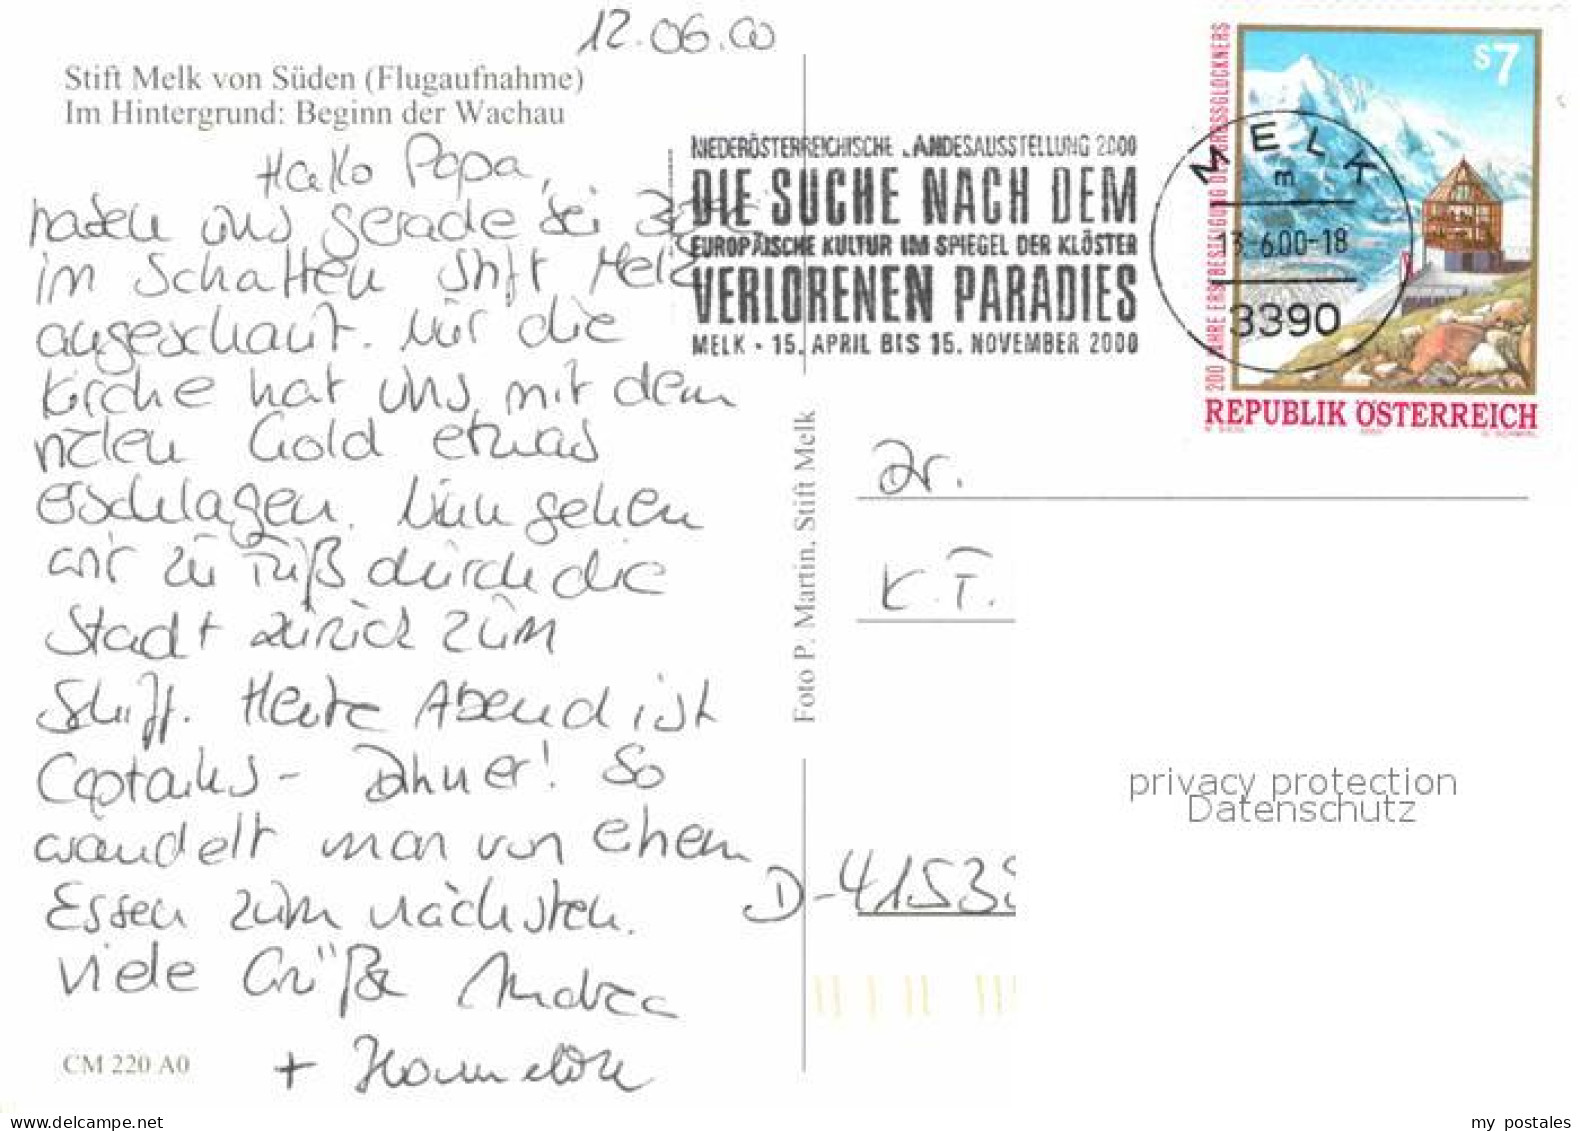 12.06.00
Stift Melk von Süden (Flugaufnahme)
Im Hintergrund: Beginn der Wachau
Hallo Papa,
haben uns gerade bei
im Schatten Stift Melk
angeschaut. Nur die
Kirche hat uns mit dem
vielen Gold etwas
erschlagen. Nun gehen
wir zu Fuß durch die
Stadt zurück zum
Schiff. Heute Abend ist
Captains-Dinner! So
wandelt man von einem
Essen zum nächsten.
Viele Grüße Andrea
+ Hannelore
CM 220 A0
Foto P. Martin, Stift Melk
NIEDERÖSTERREICHISCHE LANDESAUSSTELLUNG 2000
DIE SUCHE NACH DEM
EUROPÄISCHE KULTUR IM SPIEGEL DER KLÖSTER
VERLORENEN PARADIES
MELK · 15. APRIL BIS 15. NOVEMBER 2000
MELK
m
13.-6.00-18
3390
S7
200 JAHRE ERSTBESTEIGUNG DES GROSSGLOCKNERS
REPUBLIK ÖSTERREICH
Dr.
K.T.
D-41539
privacy protection
Datenschutz
www.delcampe.net
my postales